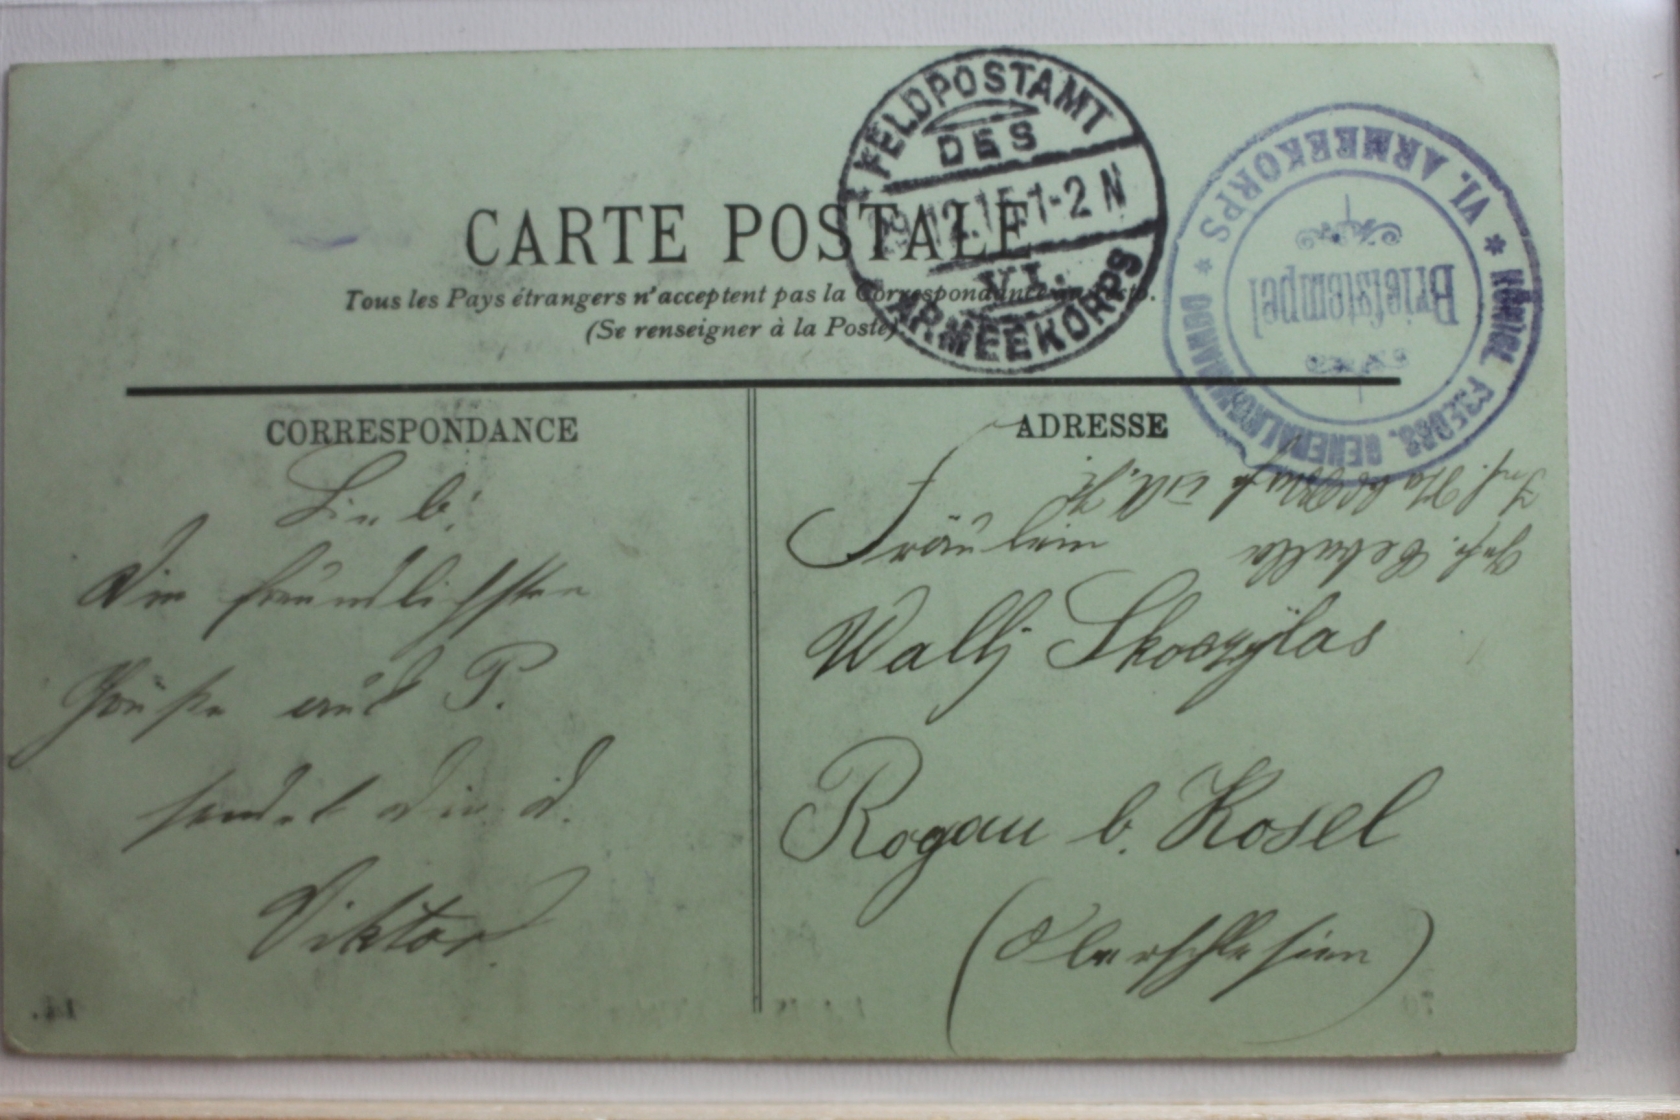 FELDPOSTAMT
DES
19.12.15.1-2 N
VI.
ARMEEKORPS
KÖNIGL. PREUSS. GENERALKOMMANDO * VI. ARMEEKORPS *
Briefstempel
CARTE POSTALE
Tous les Pays étrangers n'acceptent pas la Correspondance au recto.
(Se renseigner à la Poste)
CORRESPONDANCE
Lieb!
Die freundlichsten
Grüße aus P.
sendet Dir d.
Viktor.
ADRESSE
Fräulein
Wally Skoczylas
Rogau b. Kosel
(Oberschlesien)